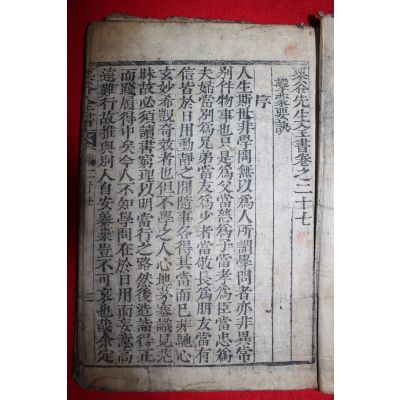 栗谷先生全書卷之二十七
擊蒙要訣
序
人生斯世非學問無以爲人所謂學問者亦非異常
別件物事也只是爲父當慈爲子當孝爲臣當忠爲
夫婦當別爲兄弟當友爲少者當敬長爲朋友當有
信皆於日用動靜之間隨事各得其當而已非馳心
玄妙希覬奇效者也但不學之人心地茅塞識見茫
昧故必須讀書窮理以明當行之路然後造詣得正
而踐履得中矣今人不知學問在於日用而妄意高
遠難行故推與別人自安暴棄豈不可哀也哉余定
栗谷全書
二十七